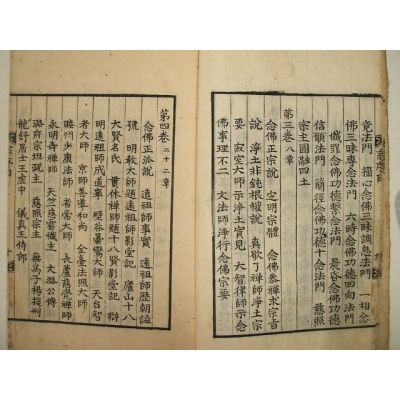 竟法門 攝心念佛三昧調息法門 相念
佛三昧專念法門 六時念佛功德回向法門
懺罪念佛功德法門 晨昏念佛功德
信願法門 簡徑念佛功德十念法門 慈照
宗主圓融四土
第三卷 八章
念佛正宗說 定明宗體 念佛參禪求宗旨
說 淨土非鈍根權說 真歇了禪師淨土宗
要 寂室大師示淨土實見 大智律師示念
佛事理不二 文法師淨行念佛宗要
第四卷 二十二章
念佛正派說 遠祖師事實 遠祖師歷朝謚
號 明教大師題遠祖師影堂記 廬山十八
大賢名氏 貫休禪師題十八賢影堂記 辯
明遠祖師成道事 壁谷曇鸞大師 天台智
者大師 京師善導和尚 金臺法照大師
睦州少康法師 省常大師 長蘆慈覺禪師
永明壽禪師 天竺慈雲懺主 文潞公傳
潞府宗坦疏主 慈照宗主 無為子楊提刑
龍舒居士王虛中 儀真王侍郎